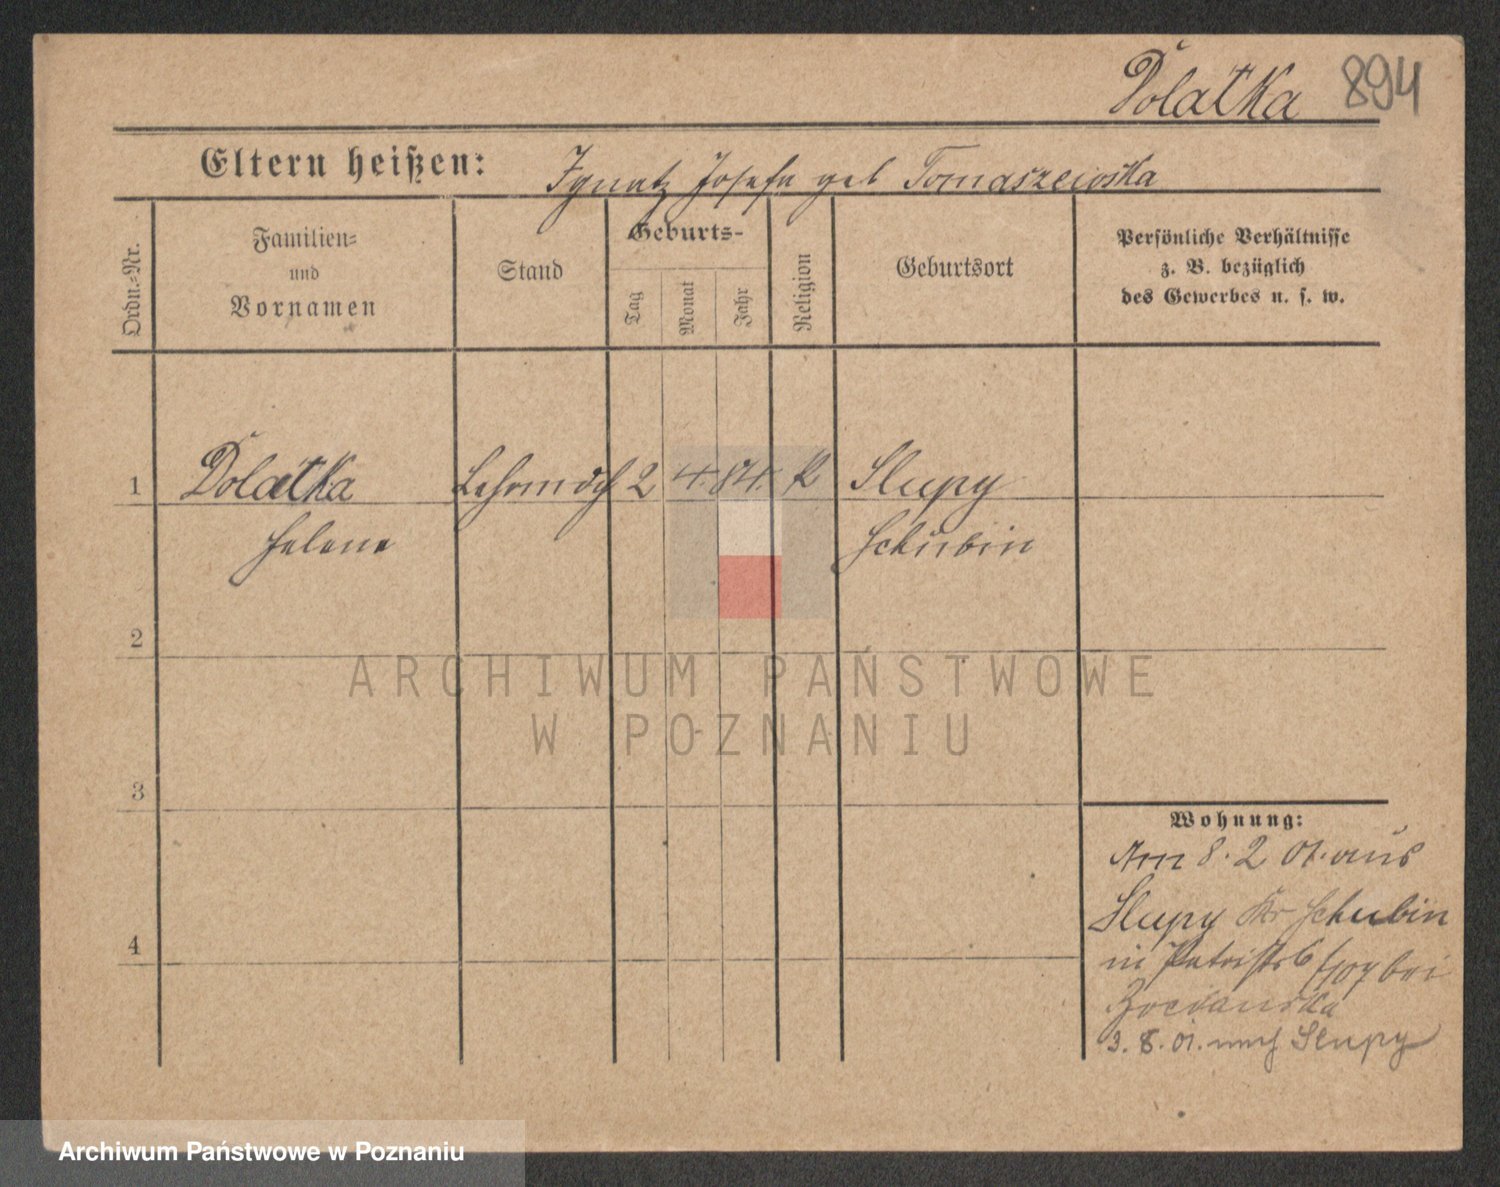 Dolatka 894
Eltern heißen: Ignatz Josefa geb Tomaszewska
Ordn.-Nr.
Familien-
und
Vornamen
Stand
Geburts-
Tag
Monat
Jahr
Religion
Geburtsort
Persönliche Verhältnisse
z. B. bezüglich
des Gewerbes u. s. w.
1 Dolatka Lehrmdch 2 4. 84. K Slupy
Helene Schubin
2
3
4
Wohnung:
Am 8. 2 01. aus
Slupy Kr Schubin
in bei
3. 8. 01. nach Slupy
ARCHIWUM PAŃSTWOWE
W POZNANIU
Archiwum Państwowe w Poznaniu